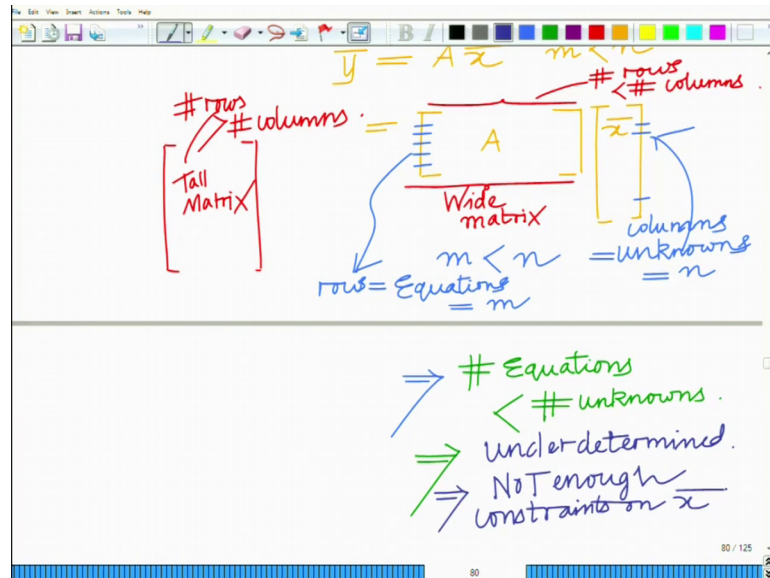 File Edit View Insert Actions Tools Help
B I
y = A x m < n
# rows
< # columns.
# rows
> # columns.
= [ A ] [ x ]
Tall
Matrix
Wide
matrix
columns
= unknowns
= n
m < n
rows = Equations
= m
⇒ # Equations
< # unknowns.
⇒ underdetermined.
⇒ NOT enough
constraints on x
80 / 125
80